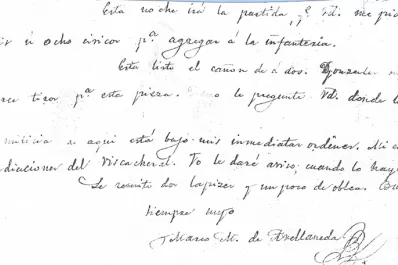 Esta noche irá la partida, y Vd. me
ú ocho civicos pª agregar á la infanteria.
Esta listo el cañon de á dos. Gonzalez
tiros pª esta pieza. le pregunte Vd. donde
milicia de aqui está bajo mis inmediatas ordenes. Mi
diciones del Viscacheral. Yo le daré aviso, cuando lo hay
Le remito dos lapizes y un poco de oblea.
Siempre suyo
Marco M. de Avellaneda